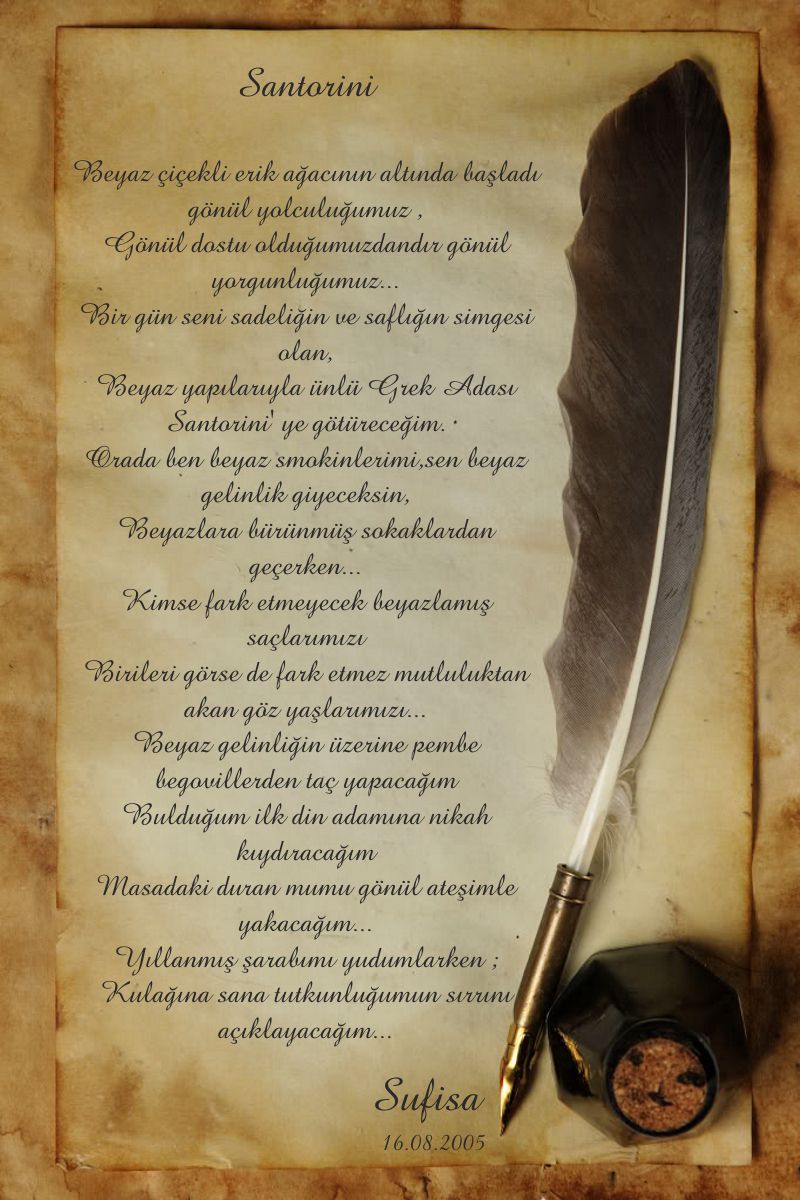 Santorini
Beyaz çiçekli erik ağacının altında başladı
gönül yolculuğumuz ,
Gönül dostu olduğumuzdandır gönül
yorgunluğumuz...
Bir gün seni sadeliğin ve saflığın simgesi
olan,
Beyaz yapılarıyla ünlü Grek Adası
Santorini' ye götüreceğim.
Orada ben beyaz smokinlerimi,sen beyaz
gelinlik giyeceksin,
Beyazlara bürünmüş sokaklardan
geçerken...
Kimse fark etmeyecek beyazlamış
saçlarımızı
Birileri görse de fark etmez mutluluktan
akan göz yaşlarımızı...
Beyaz gelinliğin üzerine pembe
begovillerden taç yapacağım
Bulduğum ilk din adamına nikah
kıydıracağım
Masadaki duran mumu gönül ateşimle
yakacağım...
Yıllanmış şarabımı yudumlarken ;
Kulağına sana tutkunluğumun sırrını
açıklayacağım...
Sufisa
16.08.2005